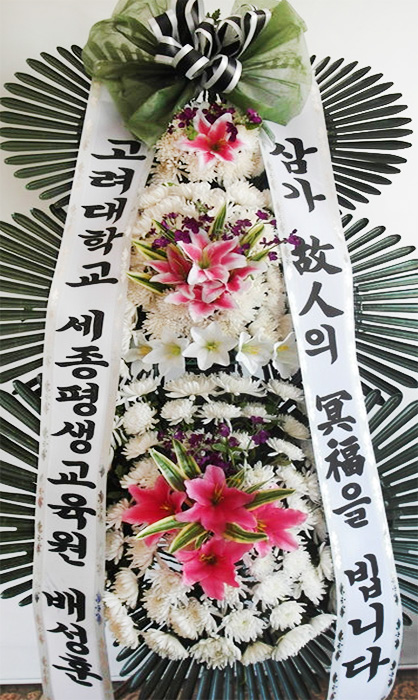 고려대학교 세종평생교육원 배성훈
삼가 故人의 冥福을 빕니다